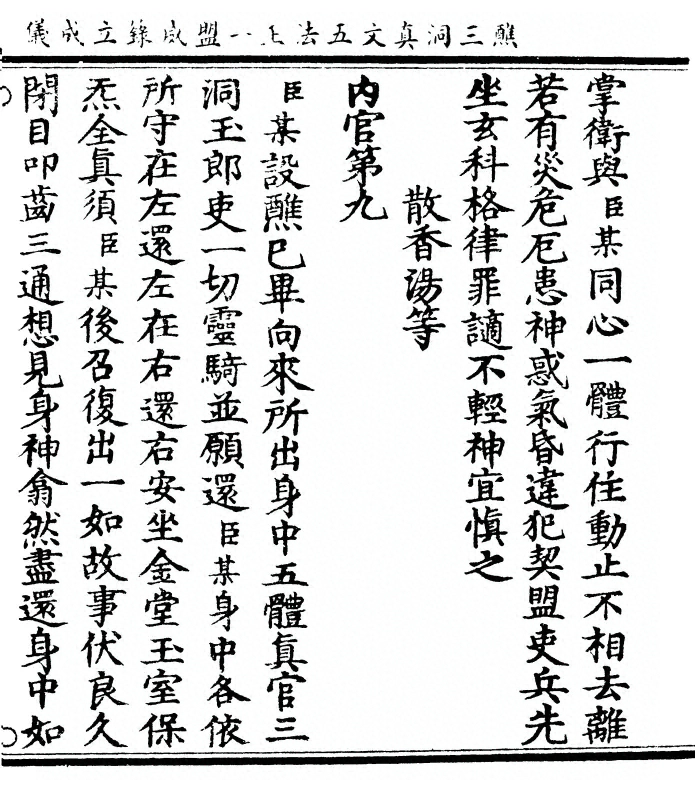 醮三洞真文五法正一盟威籙立成儀
掌衛與臣某同心一體行住動止不相去離
若有災危厄患神惑氣昏違犯契盟吏兵先
坐玄科格律罪謫不輕神宜慎之
散香湯等
內官第九
臣某設醮已畢向來所出身中五體真官三
洞玉郎吏一切靈騎並願還臣某身中各依
所守在左還左在右還右安坐金堂玉室保
炁全真須臣某後召復出一如故事伏良久
閉目叩齒三通想見身神翕然盡還身中如